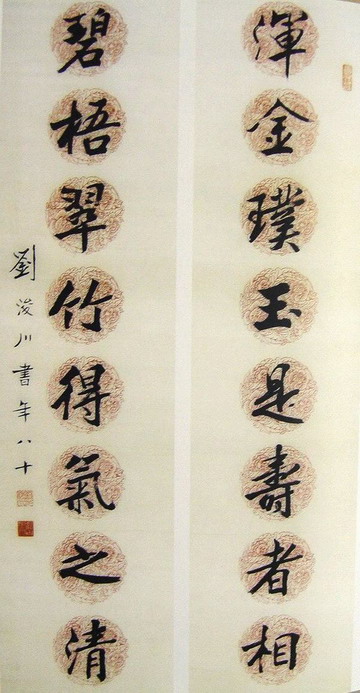 渾金璞玉是壽者相
碧梧翠竹得氣之清
劉浚川書年八十